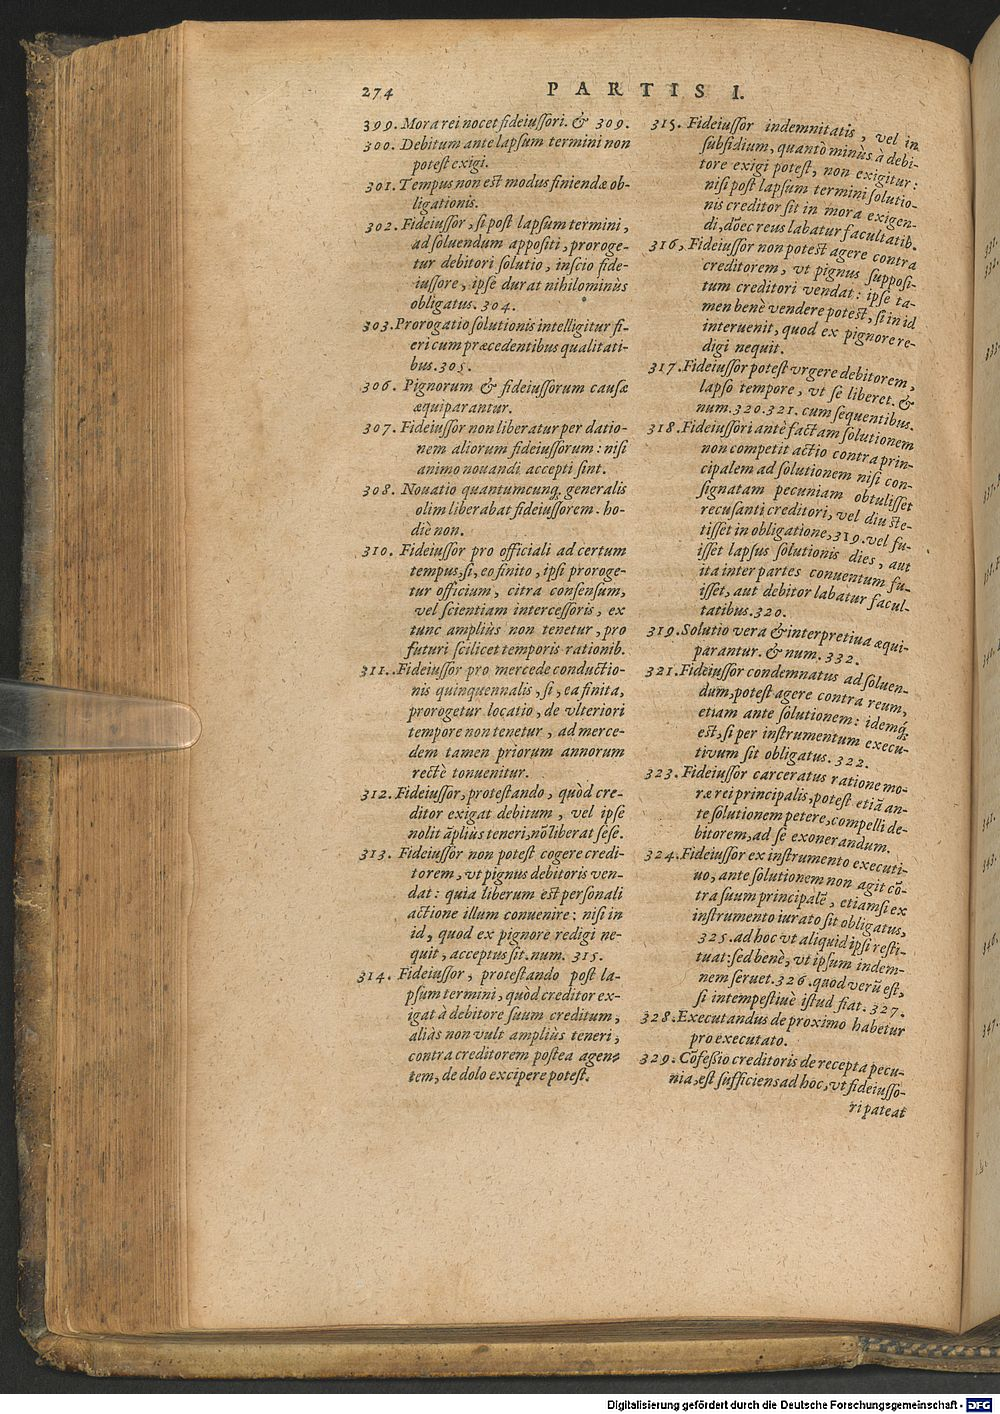 274 PARTIS I.
399. Mora rei nocet fideiussori. & 309.
300. Debitum ante lapsum termini non
potest exigi.
301. Tempus non est modus finiendæ ob-
ligationis.
302. Fideiussor, si post lapsum termini,
ad soluendum appositi, proroge-
tur debitori solutio, inscio fide-
iussore, ipse durat nihilominùs
obligatus. 304.
303. Prorogatio solutionis intelligitur fi-
eri cum præcedentibus qualitati-
bus. 305.
306. Pignorum & fideiussorum causæ
æquiparantur.
307. Fideiussor non liberatur per datio-
nem aliorum fideiussorum: nisi
animo nouandi accepti sint.
308. Nouatio quantumcunq; generalis
olim liberabat fideiussorem. ho-
diè non.
310. Fideiussor pro officiali ad certum
tempus, si, eo finito, ipsi proroge-
tur officium, citra consensum,
vel scientiam intercessoris, ex
tunc ampliùs non tenetur, pro
futuri scilicet temporis rationib.
311. .Fideiussor pro mercede conductio-
nis quinquennalis, si, ea finita,
prorogetur locatio, de vlteriori
tempore non tenetur, ad merce-
dem tamen priorum annorum
rectè tonuenitur.
312. Fideiussor, protestando, quòd cre-
ditor exigat debitum, vel ipse
nolit āpliùs teneri, nō liberat sese.
313. Fideiussor non potest cogere credi-
torem, vt pignus debitoris ven-
dat: quia liberum est personali
actione illum conuenire: nisi in
id, quod ex pignore redigi ne-
quit, acceptus sit. num. 315.
314. Fideiussor, protestando post la-
psum termini, quòd creditor ex-
igat à debitore suum creditum,
aliàs non vult ampliùs teneri,
contra creditorem postea agen-
tem, de dolo excipere potest.
315. Fideiussor indemnitatis, vel in
subsidium, quantò minùs à debi-
tore exigi potest, non exigitur:
nisi post lapsum termini solutio-
nis creditor sit in mora exigen-
di, dōec reus labatur facultatib.
316, Fideiussor non potest agere contra
creditorem, vt pignus supposi-
tum creditori vendat: ipse ta-
men benè vendere potest, si in id
interuenit, quod ex pignore re-
digi nequit.
317. Fideiussor potest vrgere debitorem,
lapso tempore, vt se liberet. &
num. 320. 321. cum sequentibus.
318. Fideiussori antè factam solutionem
non competit actio contra prin-
cipalem ad solutionem nisi con-
signatam pecuniam obtulisset
recusanti creditori, vel diu ste-
tisset in obligatione, 319. vel fu-
isset lapsus solutionis dies, aut
ita inter partes conuentum fu-
isset, aut debitor labatur facul-
tatibus. 320.
319. Solutio vera & interpretiua æqui-
parantur. & num. 332.
321. Fideiussor condemnatus ad soluen-
dum, potest agere contra reum,
etiam ante solutionem: idemq;
est, si per instrumentum execu-
tiuum sit obligatus. 322.
323. Fideiussor carceratus ratione mo-
ræ rei principalis, potest etiā an-
te solutionem petere, compelli de-
bitorem, ad se exonerandum.
324. Fideiussor ex instrumento executi-
uo, ante solutionem non agit cō-
tra suum principalē, etiamsi ex
instrumento iurato sit obligatus,
325. ad hoc vt aliquid ipsi resti-
tuat: sed benè, vt ipsum indem-
nem seruet. 326. quod verū est,
si intempestiuè istud fiat. 327.
328. Executandus de proximo habetur
pro executato.
329. Cōfessio creditoris de recepta pecu-
nia, est sufficiens ad hoc, vt fideiusso-
ri pateat
Digitalisierung gefördert durch die Deutsche Forschungsgemeinschaft - DFG